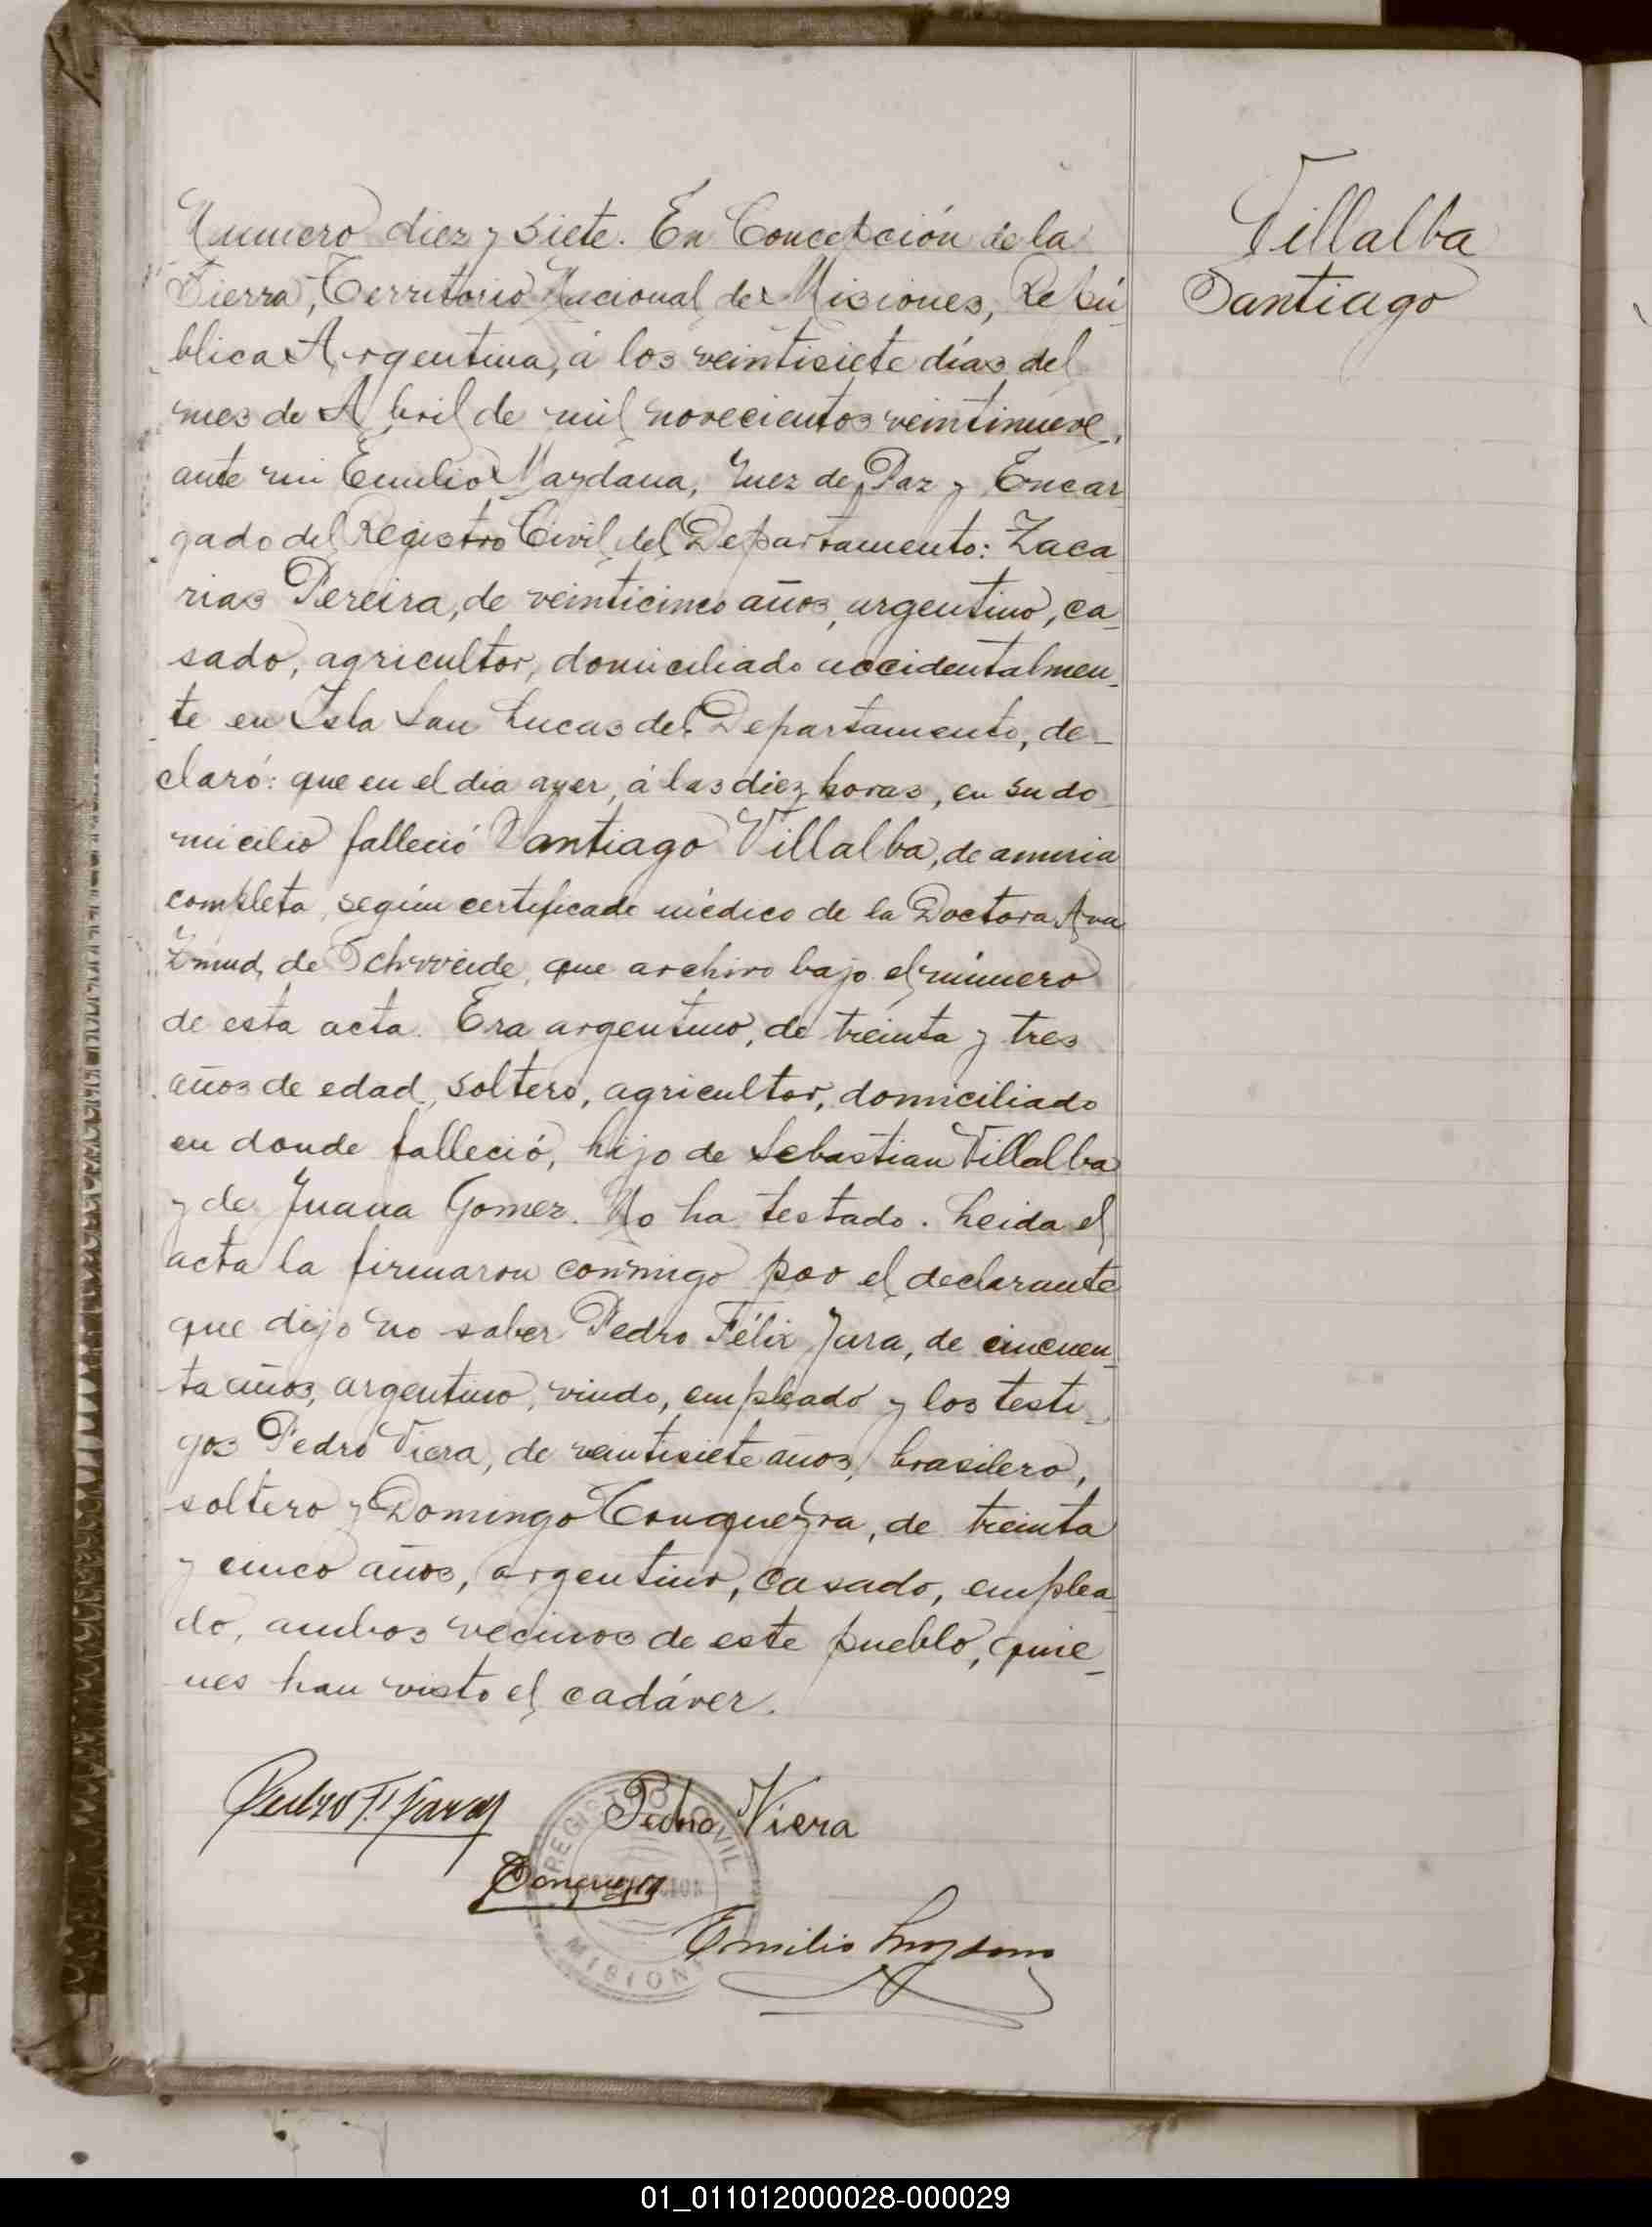 Villalba
Santiago
Numero diez y siete. En Concepción de la
Sierra, Territorio Nacional de Misiones, Repú-
blica Argentina, á los veintisiete días del
mes de Abril de mil novecientos veintinueve,
ante mi Emilio Maydana, Juez de Paz y Encar-
gado del Registro Civil del Departamento: Zaca-
rias Pereira, de veinticinco años, argentino, ca-
sado, agricultor, domiciliado accidentalmen-
te en Isla San Lucas del Departamento, de-
claró: que en el dia ayer, á las diez horas, en su do-
micilio falleció Santiago Villalba, de anuria
completa, según certificado médico de la Doctora Ana
Zmud de Schvveide, que archivo bajo el número
de esta acta. Era argentino, de treinta y tres
años de edad, soltero, agricultor, domiciliado
en donde falleció, hijo de Sebastian Villalba
y de Juana Gomez. No ha testado. Leida el
acta la firmaron conmigo por el declarante
que dijo no saber Pedro Félix Jara, de cincuen-
ta años, argentino, viudo, empleado y los testi-
gos Pedro Viera, de veintisiete años, brasilero,
soltero y Domingo Conqueyra, de treinta
y cinco años, argentino, casado, emplea-
do, ambos vecinos de este pueblo, quie-
nes han visto el cadáver.
Pedro F. Jara
Pedro Viera
REGISTRO CIVIL
MISIONES
Emilio Maydana
01_011012000028-000029